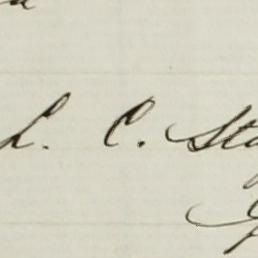 L. C. Sta